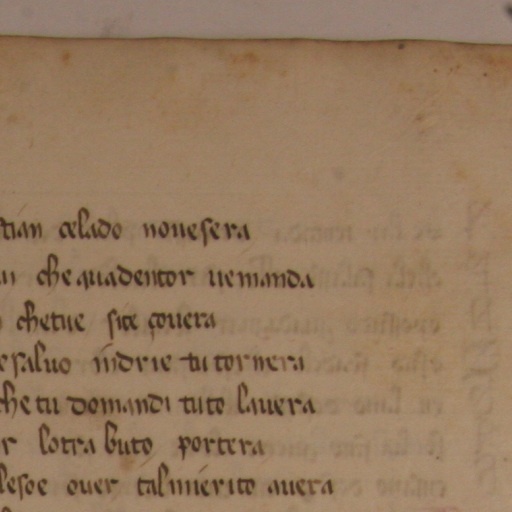 tian celado nouesera
che auadentor uemanda
chetue site çouera
esaluo indrie tu tornera
che tu domandi tuto lauera
r lotra buto portera
lesoe ouer talmierito auera